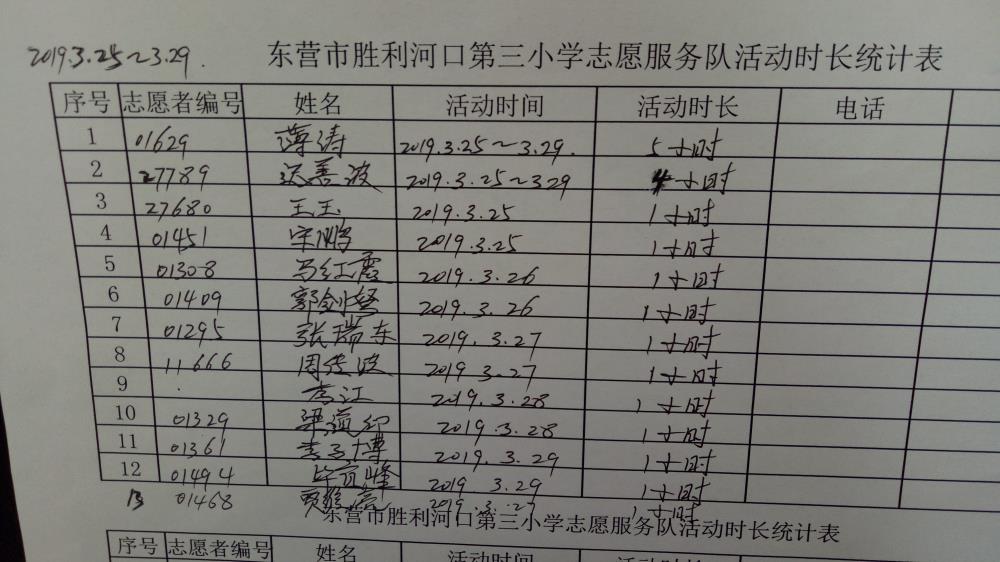 2019.3.25~3.29. 东营市胜利河口第三小学志愿服务队活动时长统计表
序号 志愿者编号 姓名 活动时间 活动时长 电话
1 01629 薄涛 2019.3.25~3.29. 5小时
2 27789 善波 2019.3.25~3.29 4小时
3 27680 王玉 2019.3.25 1小时
4 01451 宋鹏 2019.3.25 1小时
5 01308 马红霞 2019.3.26 1小时
6 01409 郭剑 2019.3.26 1小时
7 01295 张瑞东 2019.3.27 1小时
8 11666 周传波 2019 3.27 1小时
9 李江 2019.3.28 1小时
10 01329 梁道印 2019.3.28 1小时
11 01361 李玉博 2019.3.29 1小时
12 01494 峰 2019 3.29 1小时
13 01468 贾 亮 2019.3.27 1小时
东营市胜利河口第三小学志愿服务队活动时长统计表
序号 志愿者编号 姓名 活动时间 活动时长